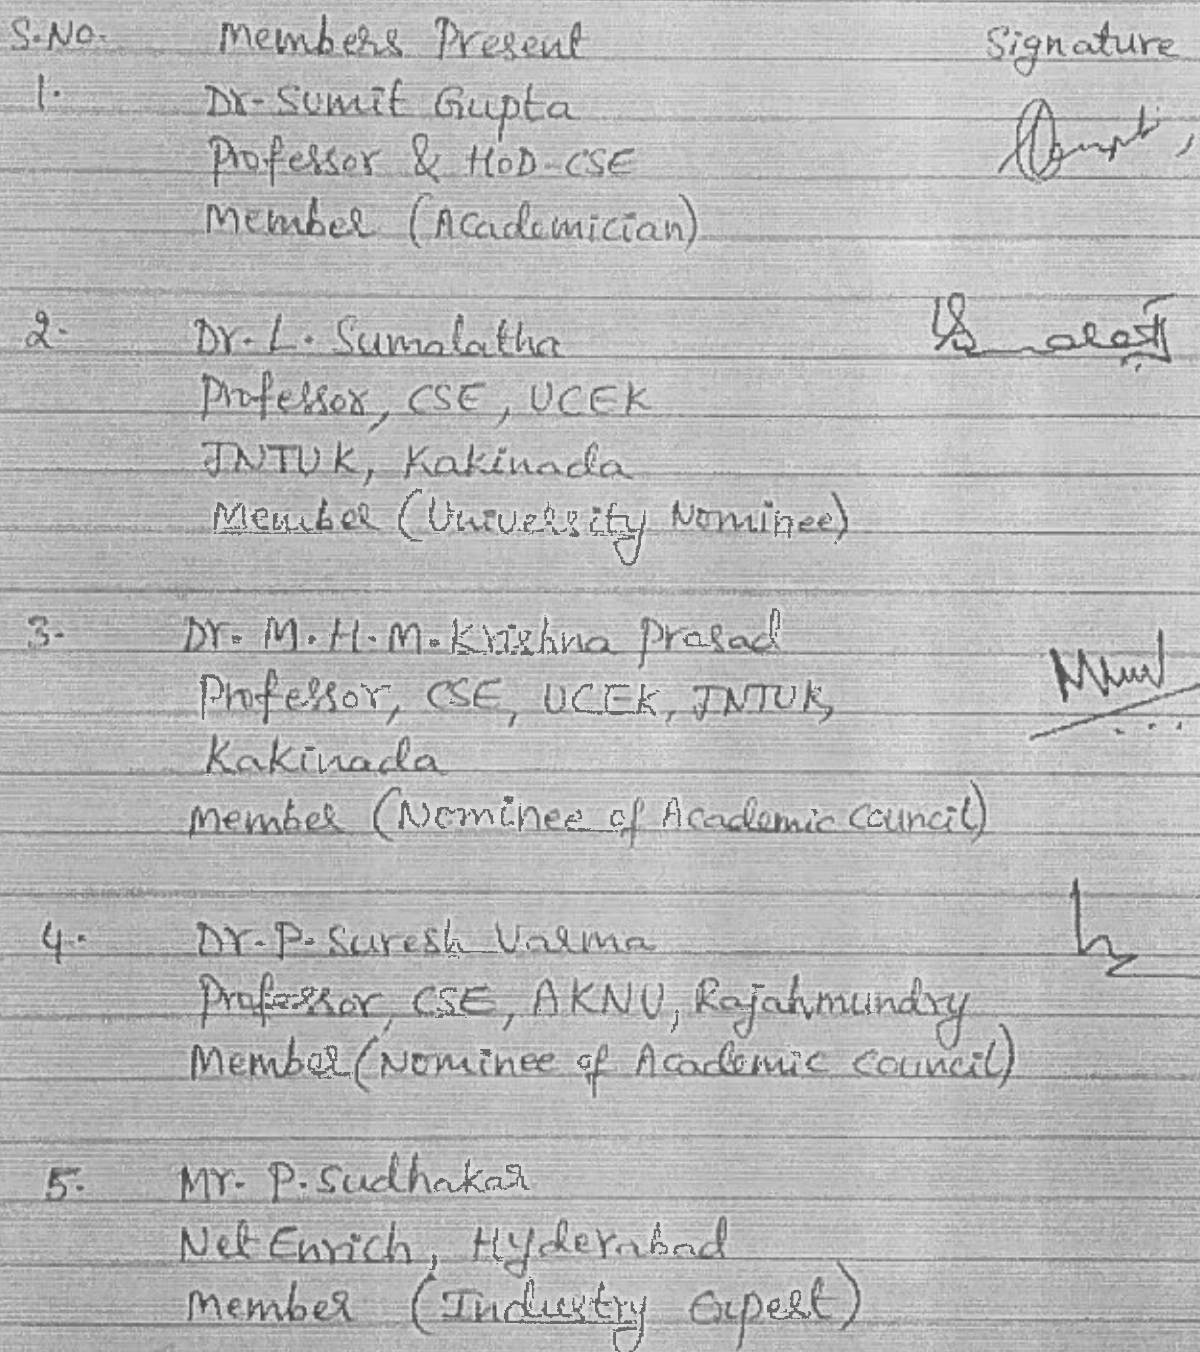 S.No. Members Present Signature
1. Dr. Sumit Gupta
Professor & HoD-CSE
Member (Academician)
2. Dr. L. Sumalatha
Professor, CSE, UCEK
JNTUK, Kakinada
Member (University Nominee)
3. Dr. M.H.M. Krishna Prasad
Professor, CSE, UCEK, JNTUK,
Kakinada
Member (Nominee of Academic Council)
4. Dr. P. Suresh Varma
Professor, CSE, AKNU, Rajahmundry
Member (Nominee of Academic Council)
5. Mr. P. Sudhakar
Net Enrich, Hyderabad
Member (Industry Expert)